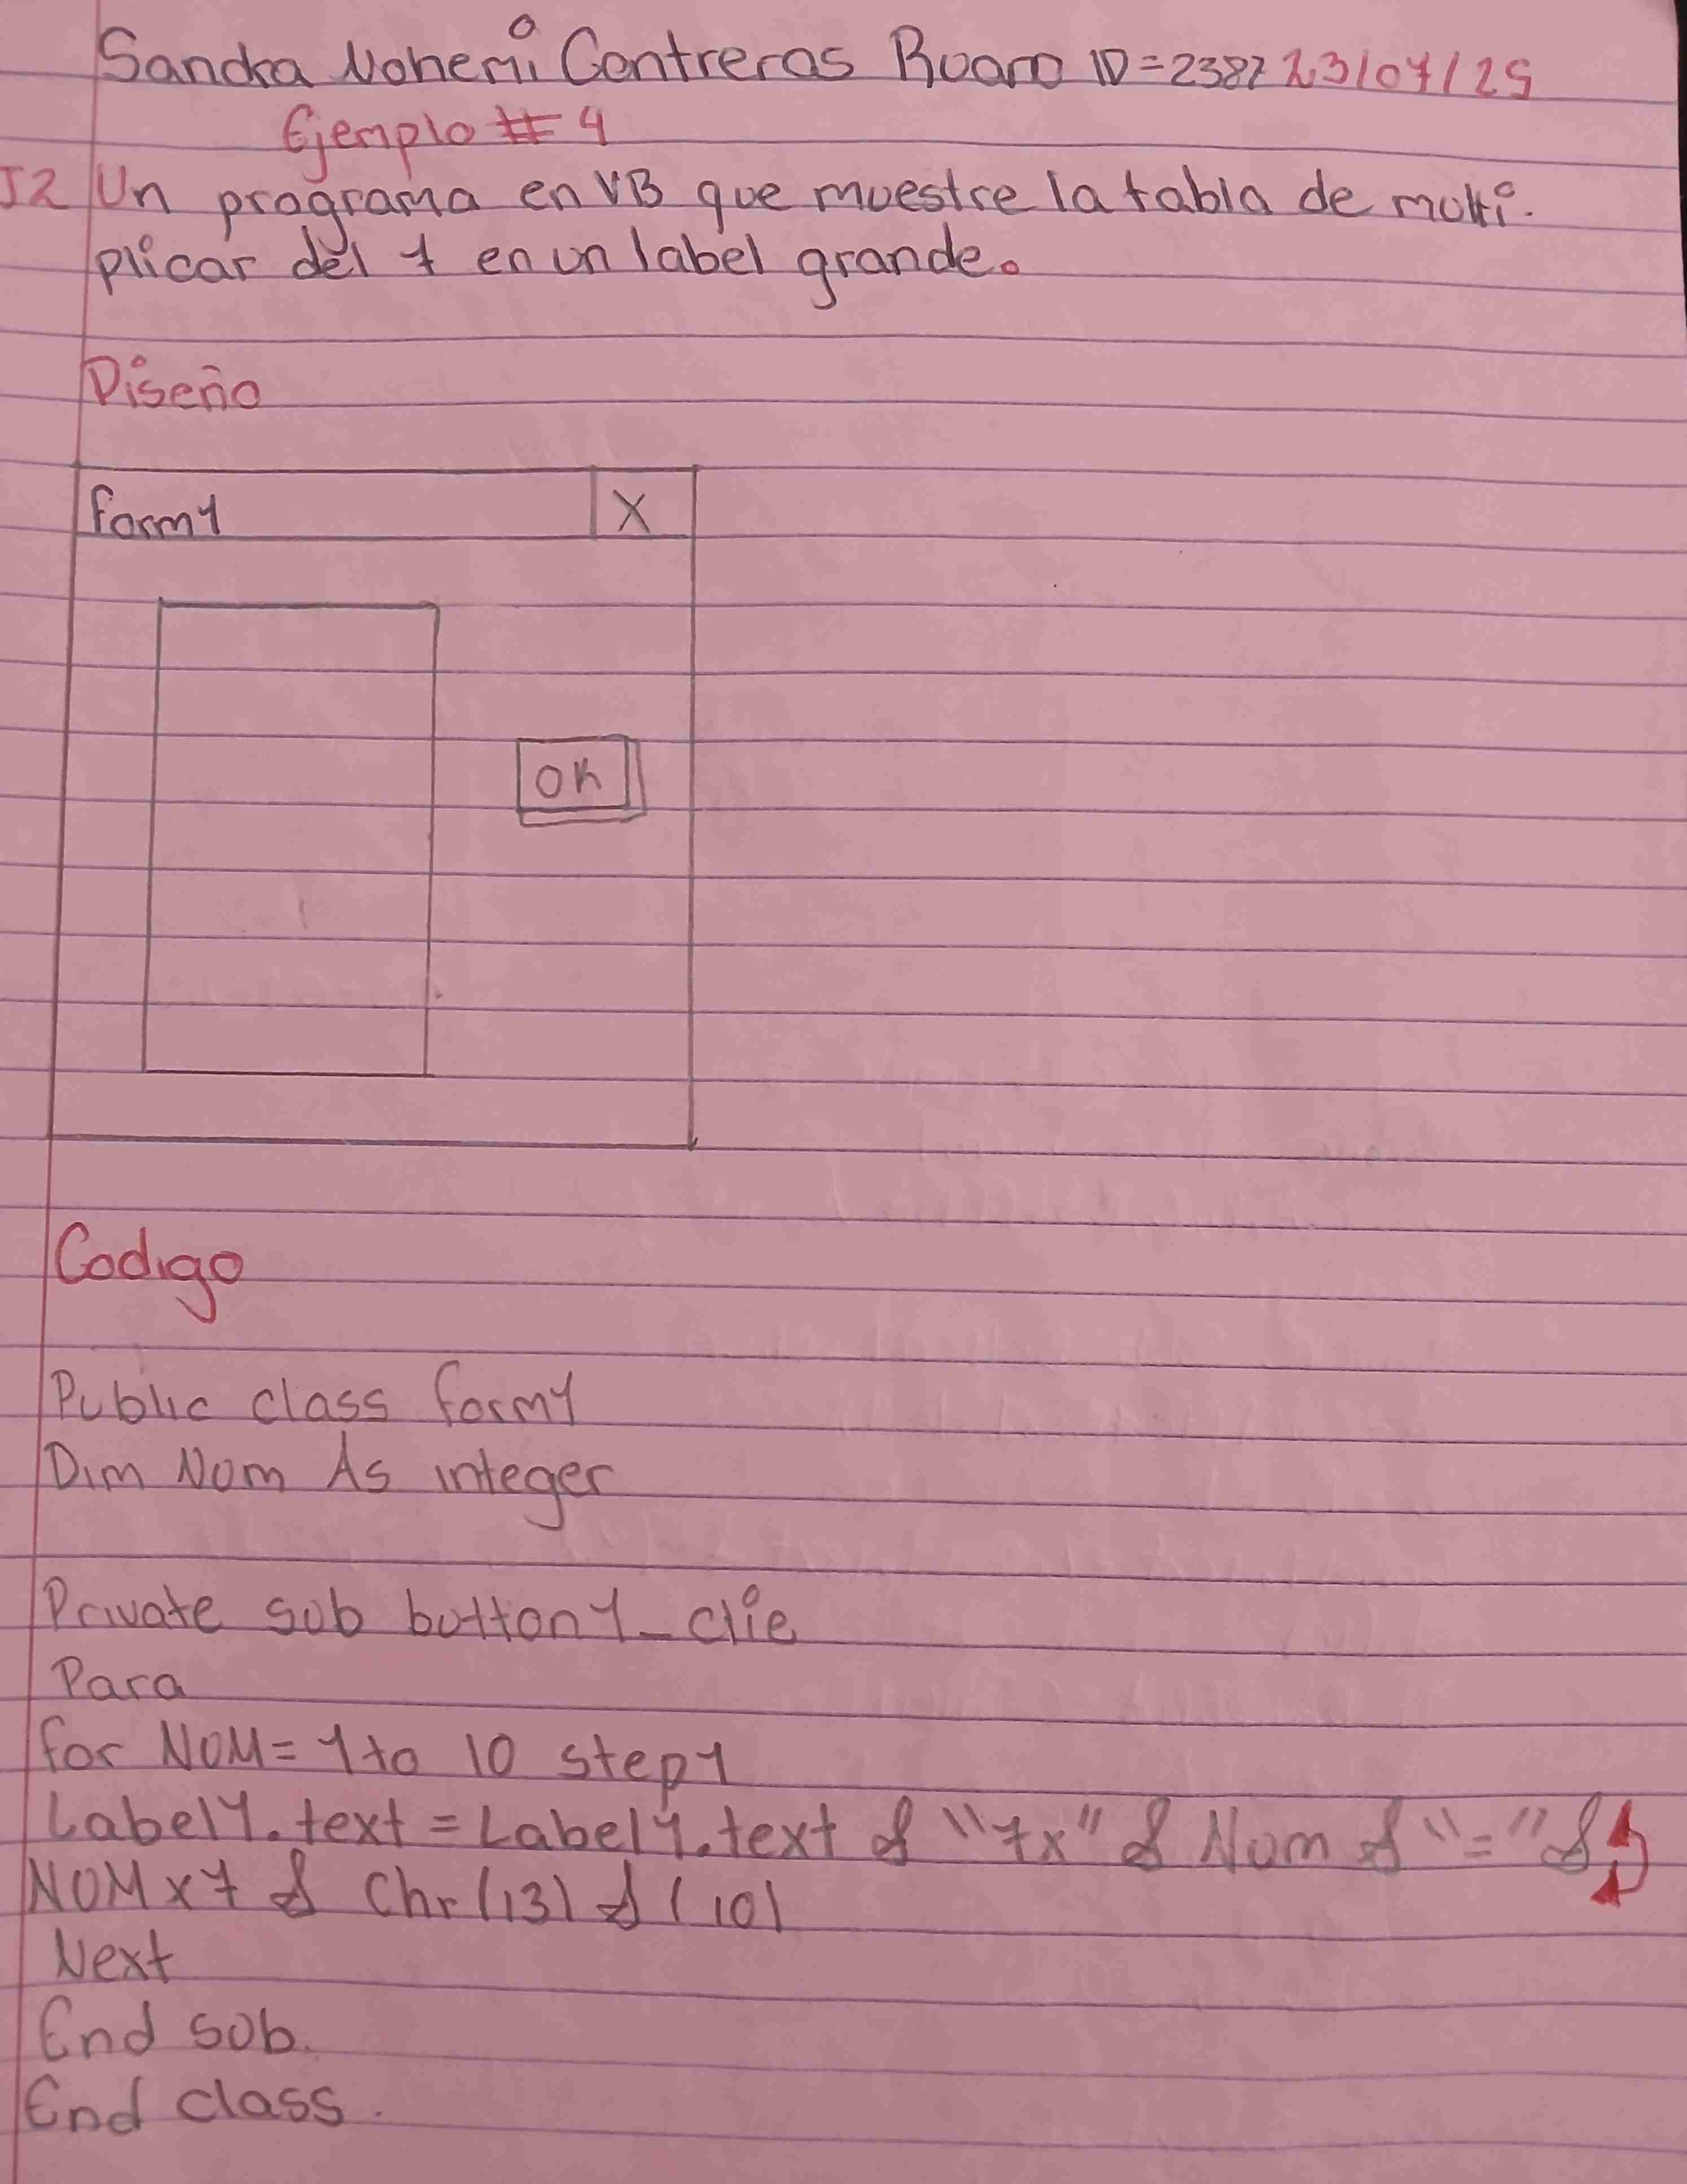 Sandra Nohemi Contreras Ruano ID=2387 23/07/25
Ejemplo # 4
J2 Un programa en VB que muestre la tabla de multi-
plicar del 7 en un label grande.
Diseño
form1 X
OK
Codigo
Public class form1
Dim Num As integer
Private sub button1_clic
Para
for NUM=1 to 10 step1
Label1.text = Label1.text & "7x" & Num & "=" &
NUM x 7 & Chr(13) & (10)
Next
End sub.
End class.